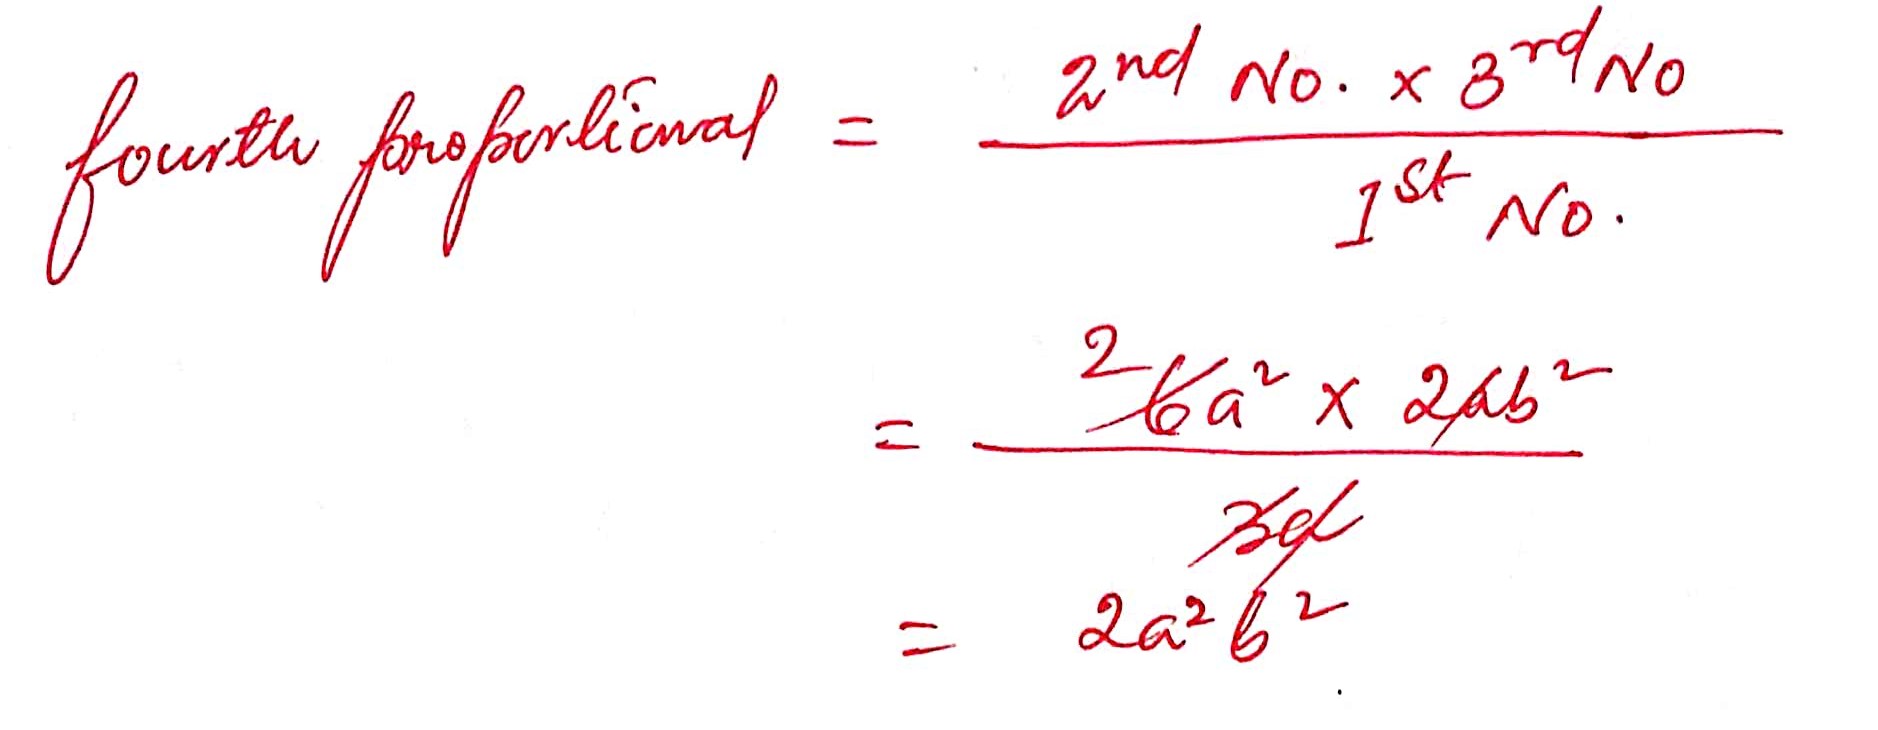 fourth proportional = 2nd No. x 3rd No / 1st No.
= 2 6a² x 2ab² / 3a
= 2a²b²